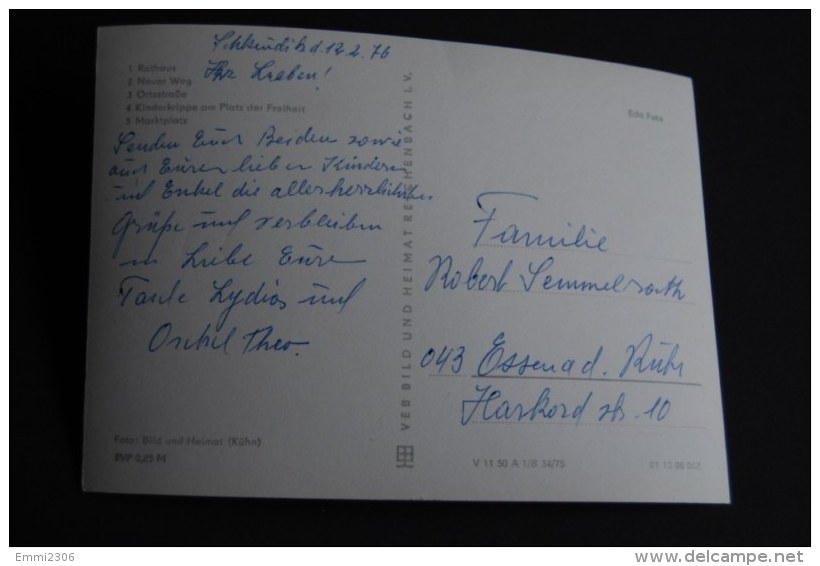 Schkeuditz d. 12.2.76
Ihr Lieben!
1 Rathaus
2 Neuer Weg
3 Ortsstraße
4 Kinderkrippe am Platz der Freiheit
5 Marktplatz
Senden Euch Beiden sowie
auch Euren lieben Kindern
und Enkel die allerherzlichsten
Grüße und verbleiben
in Liebe Eure
Tante Lydia und
Onkel Theo.
Foto: Bild und Heimat (Kühn)
EVP 0,25 M
VEB BILD UND HEIMAT REICHENBACH I. V.
Edo Foto
Familie
Robert Semmelroth
043 Essen a d. Ruhr
Harkord str. 10
V 11 50 A 1/B 34/75
01 13 06
Emmi2306
www.delcampe.net